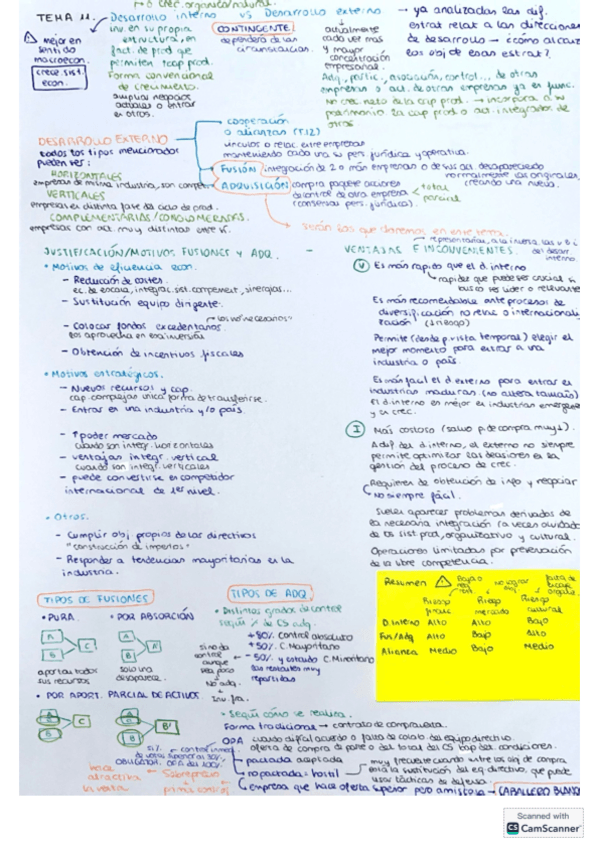 → ó crec. orgánico/natural.
TEMA 11. Desarrollo interno vs Desarrollo externo
→ ya analizadas las dif. estrat relat a las direcciones de desarrollo → ¿cómo alcanzar los obj de esas estrat?
mejor en sentido macroecon.
crece sist. econ.
inv. en su propia estructura, en fact. de prod que permiten ↑cap prod.
Forma convencional de crecimiento.
ampliar negocios actuales o entrar en otros.
CONTINGENTE:
dependerá de las circunstancias.
actualmente cada vez más
y mayor concentración empresarial.
Adq, partic., asociación, control... de otras empresas o act. de otras empresas ya en func.
No crec. neto de la cap prod. → incorpora a su patrimonio la cap prod o act. integrador de otros
DESARROLLO EXTERNO
todos los tipos mencionados pueden ser:
HORIZONTALES
empresas de misma industria, son compet
VERTICALES
empresas en distinta fase del ciclo de prod.
COMPLEMENTARIAS / CONGLOMERADAS.
empresas con act. muy distintas entre sí.
→ cooperación o alianzas (T.12)
vínculos o relac entre empresas manteniendo cada una su pers jurídica y operativa.
FUSIÓN integración de 2 o más empresas o de sus act. desapareciendo normalmente las originales, creando una nueva.
ADQUISICIÓN compra paquete acciones de control de otra empresa (conservan pers. jurídica).
total
parcial
→ serán los que daremos en este tema.
JUSTIFICACIÓN/MOTIVOS FUSIONES Y ADQ. - VENTAJAS E INCONVENIENTES.
→ representarían, a la inversa, las v e i del desarr. interno.
• Motivos de eficiencia econ.
– Reducción de costes.
ec. de escala, integrac. sist. complement, sinergias...
– Sustitución equipo dirigente.
– Colocar fondos excedentarios.
→ los no "necesarios"
los aprovecha en esa inversión
– Obtención de incentivos fiscales
• Motivos estratégicos.
– Nuevos recursos y cap.
cap. complejas única forma de transferirse.
– Entrar en una industria y/o país.
– ↑ poder mercado
cuando son integr. horizontales
– ventajas integr. vertical
cuando son integr. verticales
– puede convertirse en competidor internacional de 1er nivel.
• Otros.
– Cumplir obj propios de los directivos
"construcción de imperios"
– Responder a tendencias mayoritarias en la industria.
V Es más rápido que el d. interno
↳ rapidez que puede ser crucial si busca ser líder o relevante
Es más recomendable ante procesos de diversificación no relac o internacionalización
Permite (desde p. vista temporal) elegir el mejor momento para entrar a una industria o país.
Es más fácil el d externo para entrar en industrias maduras (no altera tamaño)
El d. interno es mejor en industrias emergentes y en crec.
I Más costoso (salvo p. de compra muy ↓).
A dif del d. interno, el externo no siempre permite optimizar las decisiones en la gestión del proceso de crec.
Requieren de obtención de info y negociar
↳ No siempre fácil.
Suelen aparecer problemas derivados de la necesaria integración (a veces olvidada) de los sist. prod, organizativo y cultural.
Operaciones limitadas por preservación de la libre competencia.
TIPOS DE FUSIONES
• PURA.
A
B
C
aportan todos sus recursos
• POR ABSORCIÓN
A
B
A
solo una desaparece.
• POR APORT. PARCIAL DE ACTIVOS.
A
B
C
A
B
B'
TIPOS DE ADQ.
• Distintos grados de control según % de CS adq.
+ 80% Control absoluto
+ 50% C. Mayoritario
– 50% y estando C. Minoritario
los restantes muy repartidos
si no da control aunque sea poco
↓
No adq.
↓
Inv. fra.
Resumen
Riesgo
Riesgo mercado
Riesgo cultural
D. Interno Alto Alto Bajo
Fus/Adq Alto Bajo Alto
Alianza Medio Bajo Medio
• Según cómo se realiza.
Forma tradicional → contrato de compraventa.
OPA cuando difícil acuerdo o falta de colab del equipo directivo.
oferta de compra de parte o del total del CS bajo det. condiciones.
→ pactada aceptada
→ no pactada = hostil
muy frecuente cuando entre los obj de compra está la sustitución del eq. directivo, que puede usar tácticas de defensa.
↳ empresa que hace oferta superior pero amistosa → CABALLERO BLANCO
OBLIGATOR. OPA del 100%
hace atractiva la venta
Sobreprecio
prima control
Scanned with
CS CamScanner